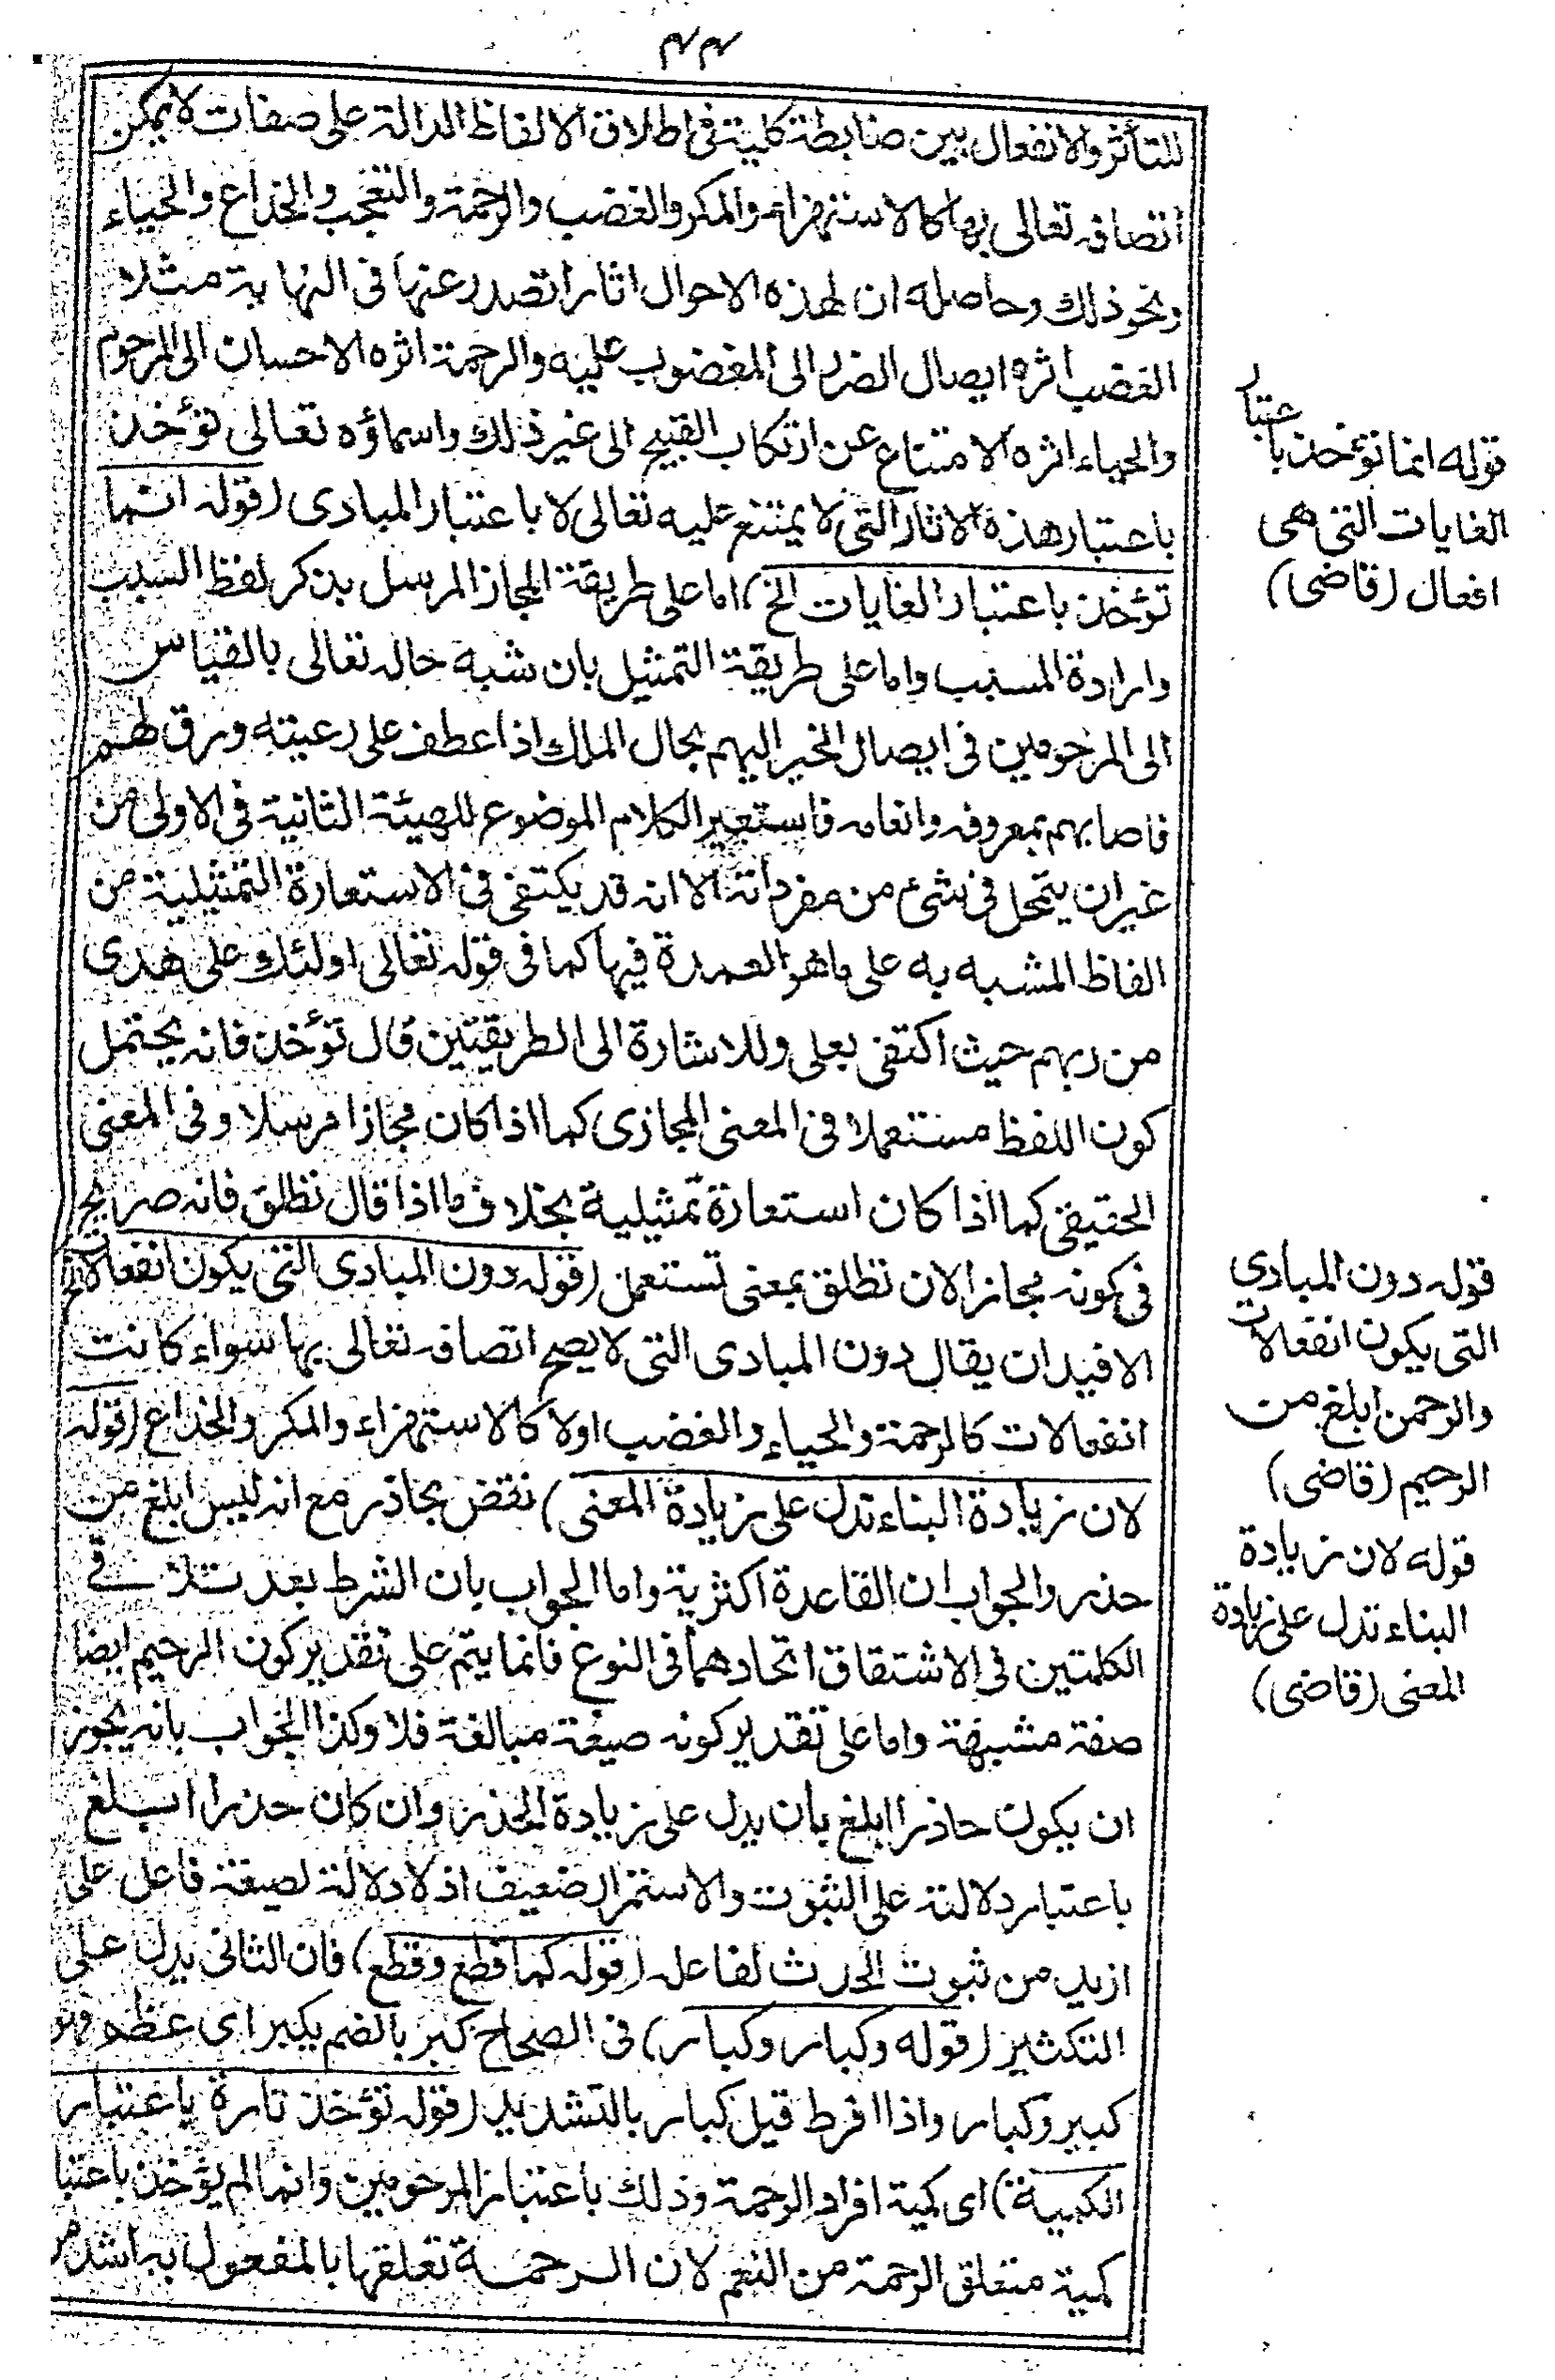 ۴۴
للتأثر والانفعال بين ضابطة كلية فى اطلاق الالفاظ الدالة على صفات لا يمكن
اتصافه تعالى بها كالاستهزاء والمكر والغضب والرحمة والتعجب والخداع والحياء
ونحو ذلك وحاصله ان لهذه الاحوال اثارا تصدر عنها فى النهاية مثلا
الغضب اثره ايصال الضرر الى المغضوب عليه والرحمة اثره الاحسان الى المرحوم
والحياء اثره الامتناع عن ارتكاب القبيح الى غير ذلك واسماؤه تعالى تؤخذ
باعتبار هذه الاثار التى لا يمتنع عليه تعالى لا باعتبار المبادى (قوله انما
تؤخذ باعتبار الغايات الخ) اما على طريقة المجاز المرسل بذكر لفظ السبب
وارادة المسبب واما على طريقة التمثيل بان شبه حاله تعالى بالقياس
الى المرحومين فى ايصال الخير اليهم بحال الملك اذا عطف على رعيته ورق لهم
فاصابهم بمعروفه وانعامه فاستعير الكلام الموضوع للهيئة الثانية فى الاولى من
غير ان يتمحل فى شئ من مفرداته الا انه قد يكتفى فى الاستعارة التمثيلية من
الفاظ المشبه به على ما هو العمدة فيها كما فى قوله تعالى اولئك على هدى
من ربهم حيث اكتفى بعلى وللاشارة الى الطريقتين قال تؤخذ فانه يحتمل
كون اللفظ مستعملا فى المعنى المجازى كما اذا كان مجازا مرسلا وفى المعنى
الحقيقى كما اذا كان استعارة تمثيلية بخلاف ما اذا قال تطلق فانه صريح
فى كونه مجازا لان تطلق بمعنى تستعمل (قوله دون المبادى التى يكون انفعالات الخ)
الافيد ان يقال دون المبادى التى لا يصح اتصافه تعالى بها سواء كانت
انفعالات كالرحمة والحياء والغضب اولا كالاستهزاء والمكر والخداع (قوله
لان زيادة البناء تدل على زيادة المعنى) نقض بحاذر مع انه ليس ابلغ من
حذر والجواب ان القاعدة اكثرية واما الجواب بان الشرط بعد تلاقى
الكلمتين فى الاشتقاق اتحادهما فى النوع فانما يتم على تقدير كون الرحيم ايضا
صفة مشبهة واما على تقدير كونه صيغة مبالغة فلا وكذا الجواب بانه يجوز
ان يكون حاذرا ابلغ بان يدل على زيادة الحذر وان كان حذرا ابلغ
باعتبار دلالته على الثبوت والاستمرار ضعيف اذ لا دلالة لصيغة فاعل على
ازيد من ثبوت الحدث لفاعله (قوله كما قطع وقطع) فان الثانى يدل على
التكثير (قوله وكبار وكبار) فى الصحاح كبر بالضم يكبر اى عظم فهو
كبير وكبار واذا افرط قيل كبار بالتشديد (قوله تؤخذ تارة باعتبار
الكمية) اى كمية افراد الرحمة وذلك باعتبار المرحومين وانما لم يؤخذ باعتبا
كمية متعلق الرحمة من النعم لان الرحمة تعلقها بالمفعول به اشد من
قوله انما تؤخذ باعتبار
الغايات التى هى
افعال (قاضى)
قوله دون المبادى
التى يكون انفعالات
والرحمن ابلغ من
الرحيم (قاضى)
قوله لان زيادة
البناء تدل على زيادة
المعنى (قاضى)